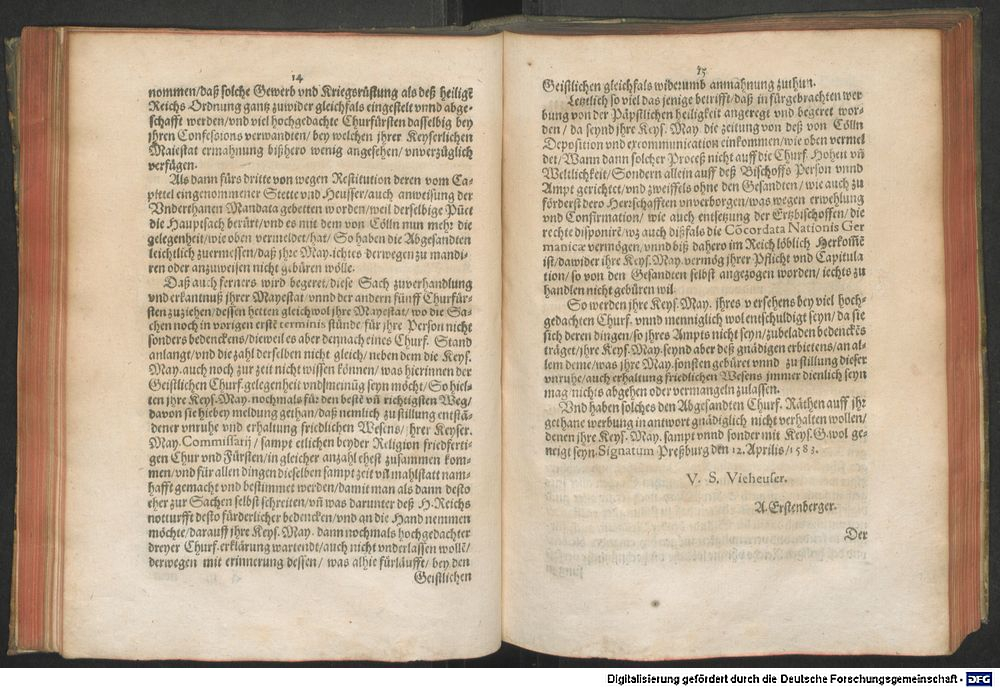 14
nommen/daß solche Gewerb vnd Kriegsrüstung als deß heiligē
Reichs Ordnung gantz zuwider gleichfals eingestelt vnnd abge-
schafft werden/vnd viel hochgedachte Churfürsten dasselbig bey
jhren Confessions verwandten/bey welchen jhrer Keyserlichen
Maiestat ermahnung bißhero wenig angesehen/vnverzüglich
verfügen.
Als dann fürs dritte von wegen Restitution deren vom Ca-
pittel eingenommener Stette vnd Heusser/auch anweisung der
Vnderthanen Mandata gebetten worden/weil derselbige Pūct
die Hauptsach berürt/vnd es mit dem von Cölln nun mehr die
gelegenheit/wie oben vermeldet/hat/ So haben die Abgesandten
leichtlich zuermessen/daß jhre May. ichtes derwegen zu mandi-
ren oder anzuweisen nicht gebüren wölle.
Daß auch ferners wird begeret/diese Sach zuverhandlung
vnd erkantnuß jhrer Mayestat/vnnd der andern fünff Churfür-
sten zuziehen/dessen hetten gleichwol jhre Mayestat/wo die Sa-
chen noch in vorigen erstē terminis stünde/für jhre Person nicht
sonders bedenckens/dieweil es aber dennach eines Churf. Stand
anlangt/vnd die zahl derselben nicht gleich/neben dem die Keys.
May. auch noch zur zeit nicht wissen können/was hierinnen der
Geistlichen Churf. gelegenheit vnd meinūg seyn möcht/So hiel-
ten jhre Keys. May. nochmals für den bestē vn̄ richtigsten Weg/
davon sie hiebey meldung gethan/daß nemlich zu stillung entstā-
dener vnruhe vnd erhaltung friedlichen Wesens/jhrer Keyser.
May. Commissarij/sampt etlichen beyder Religion friedferti-
gen Chur vnd Fürsten/in gleicher anzahl ehest zusammen kom-
men/vnd für allen dingen dieselben sampt zeit vn̄ mahlstatt nam-
hafft gemacht vnd bestimmet werden/damit man als dann desto
eher zur Sachen selbst schreiten/vn̄ was darunter deß H. Reichs
notturfft desto fürderlicher bedencken/vnd an die Hand nemmen
möchte/darauff jhre Keys. May. dann nochmals hochgedachter
dreyer Churf. erklärung wartendt/auch nicht vnderlassen wollē/
derwegen mit erinnerung dessen/was alhie fürläufft/bey den
Geistlichen
15
Geistlichen gleichfals widerumb anmahnung zuthun.
Letzlich so viel das jenige betrifft/daß in fürgebrachten wer
bung von der Päpstlichen heiligkeit angeregt vnd begeret wor-
den/da seynd jhre Keys. May. die zeitung von deß von Cölln
Deposition vnd excommunication einkommen/wie oben vermel
det/Wann dann solcher Proceß nicht auff die Churf. Hoheit vn̄
Weltlichkeit/Sondern allein auff deß Bischoffs Person vnnd
Ampt gerichtet/vnd zweiffels ohne den Gesandten/wie auch zu
förderst dero Herrschafften vnverborgen/was wegen erwehlung
vnd Confirmation/wie auch entsetzung der Ertzbischoffen/die
rechte disponirē/wz auch dißfals die Cōcordata Nationis Ger
manicæ vermögen/vnnd biß dahero im Reich löblich Herkom̄ē
ist/dawider jhre Keys. May. vermög jhrer Pflicht vnd Capitula
tion/so von den Gesandten selbst angezogen worden/iechts zu
handlen nicht gebüren wil.
So werden jhre Keys. May. jhres versehens bey viel hoch-
gedachten Churf. vnnd menniglich wol entschuldigt seyn/da sie
sich deren dingen/so jhres Ampts nicht seyn/zubeladen bedenckēs
träget/jhre Keys. May. seynd aber deß gnädigen erbietens/an al-
lem deme/was jhre May. sonsten gebüret vnnd zu stillung dieser
vnruhe/auch erhaltung friedlichen Wesens jmmer dienlich seyn
mag/nichts abgehen oder vermangeln zulassen.
Vnd haben solches den Abgesandten Churf. Räthen auff jhr
gethane werbung in antwort gnädiglich nicht verhalten wollen/
denen jhre Keys. May. sampt vnnd sonder mit Keys. G. wol ge-
neigt seyn. Signatum Preßburg den 12. Aprilis/1583.
V. S. Vieheuser.
A. Erstenberger.
Der
Digitalisierung gefördert durch die Deutsche Forschungsgemeinschaft - DFG